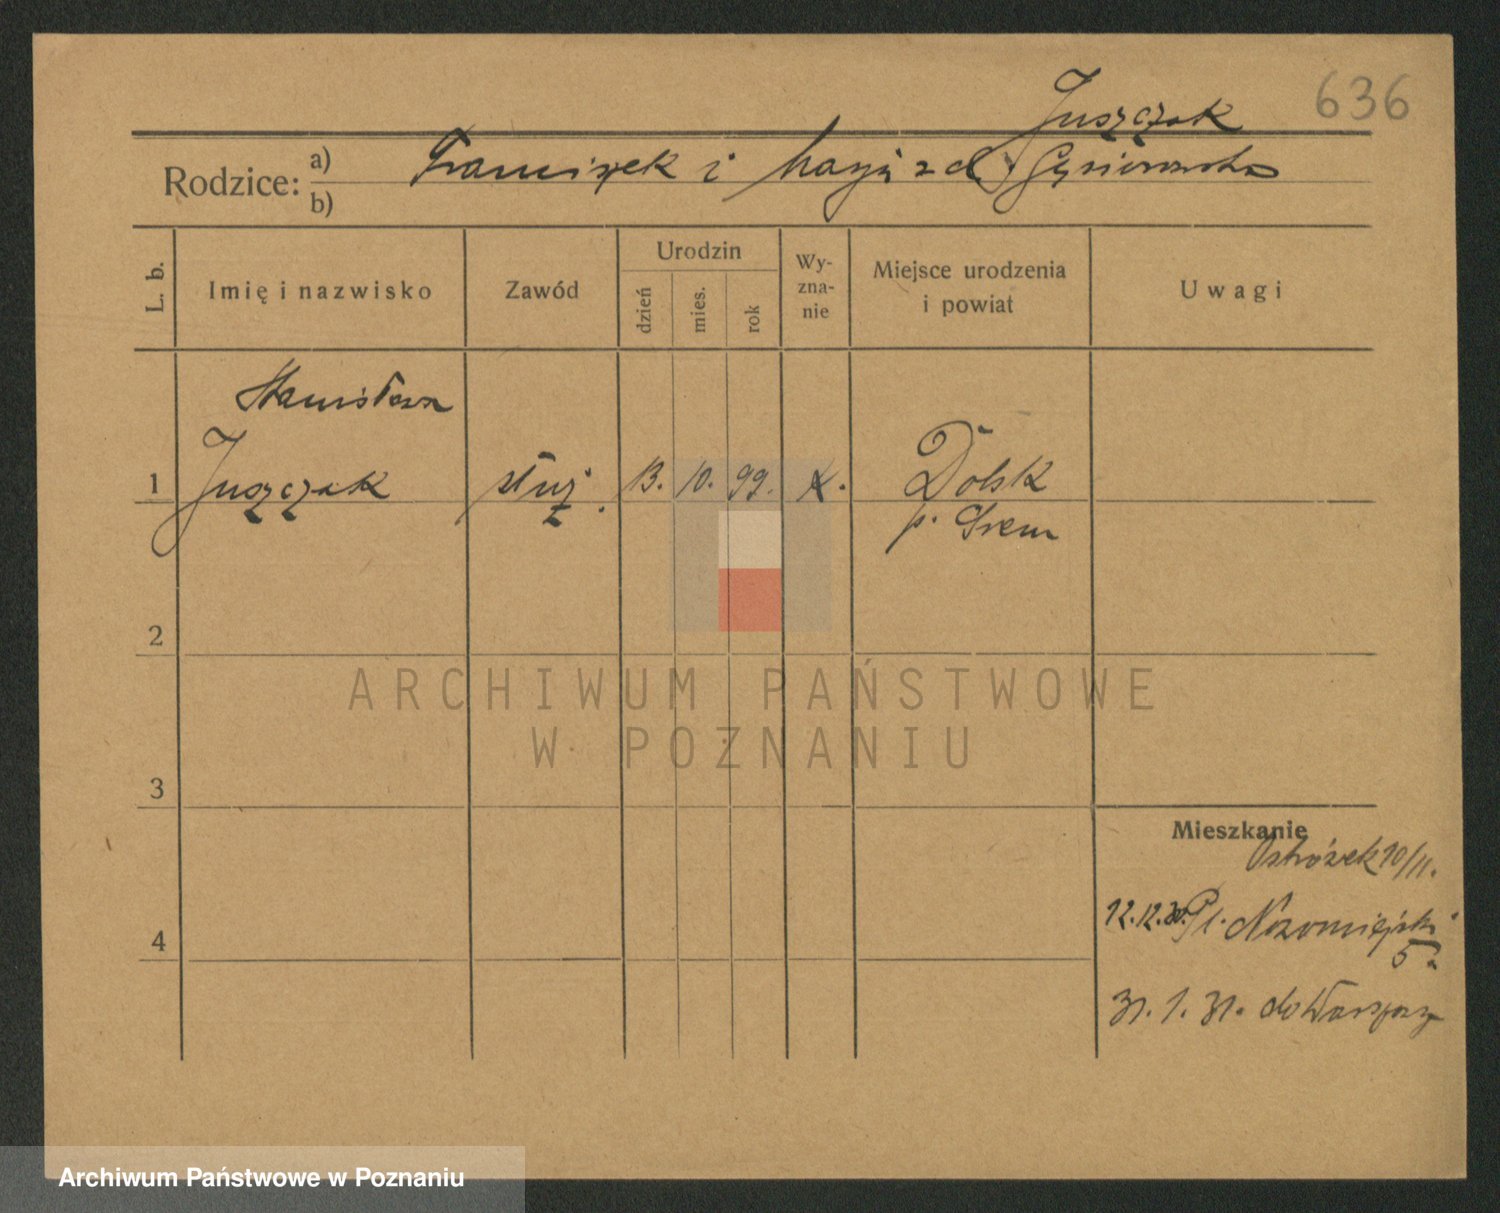 636
Juszczak
Rodzice: a) Franciszek i Marja z d. Gąsiorowska
b)
L. b. Imię i nazwisko Zawód Urodzin dzień mies. rok Wyznanie Miejsce urodzenia i powiat Uwagi
Stanisława
1 Juszczak służ. 13. 10. 99. k. Dolsk
p. Śrem
2
ARCHIWUM PAŃSTWOWE
W POZNANIU
3
Mieszkanie
Ostrówek 10/11.
12.12.30. Pl. Nowomiejski
4
5a
31. 1. 31. do Warszawy
Archiwum Państwowe w Poznaniu